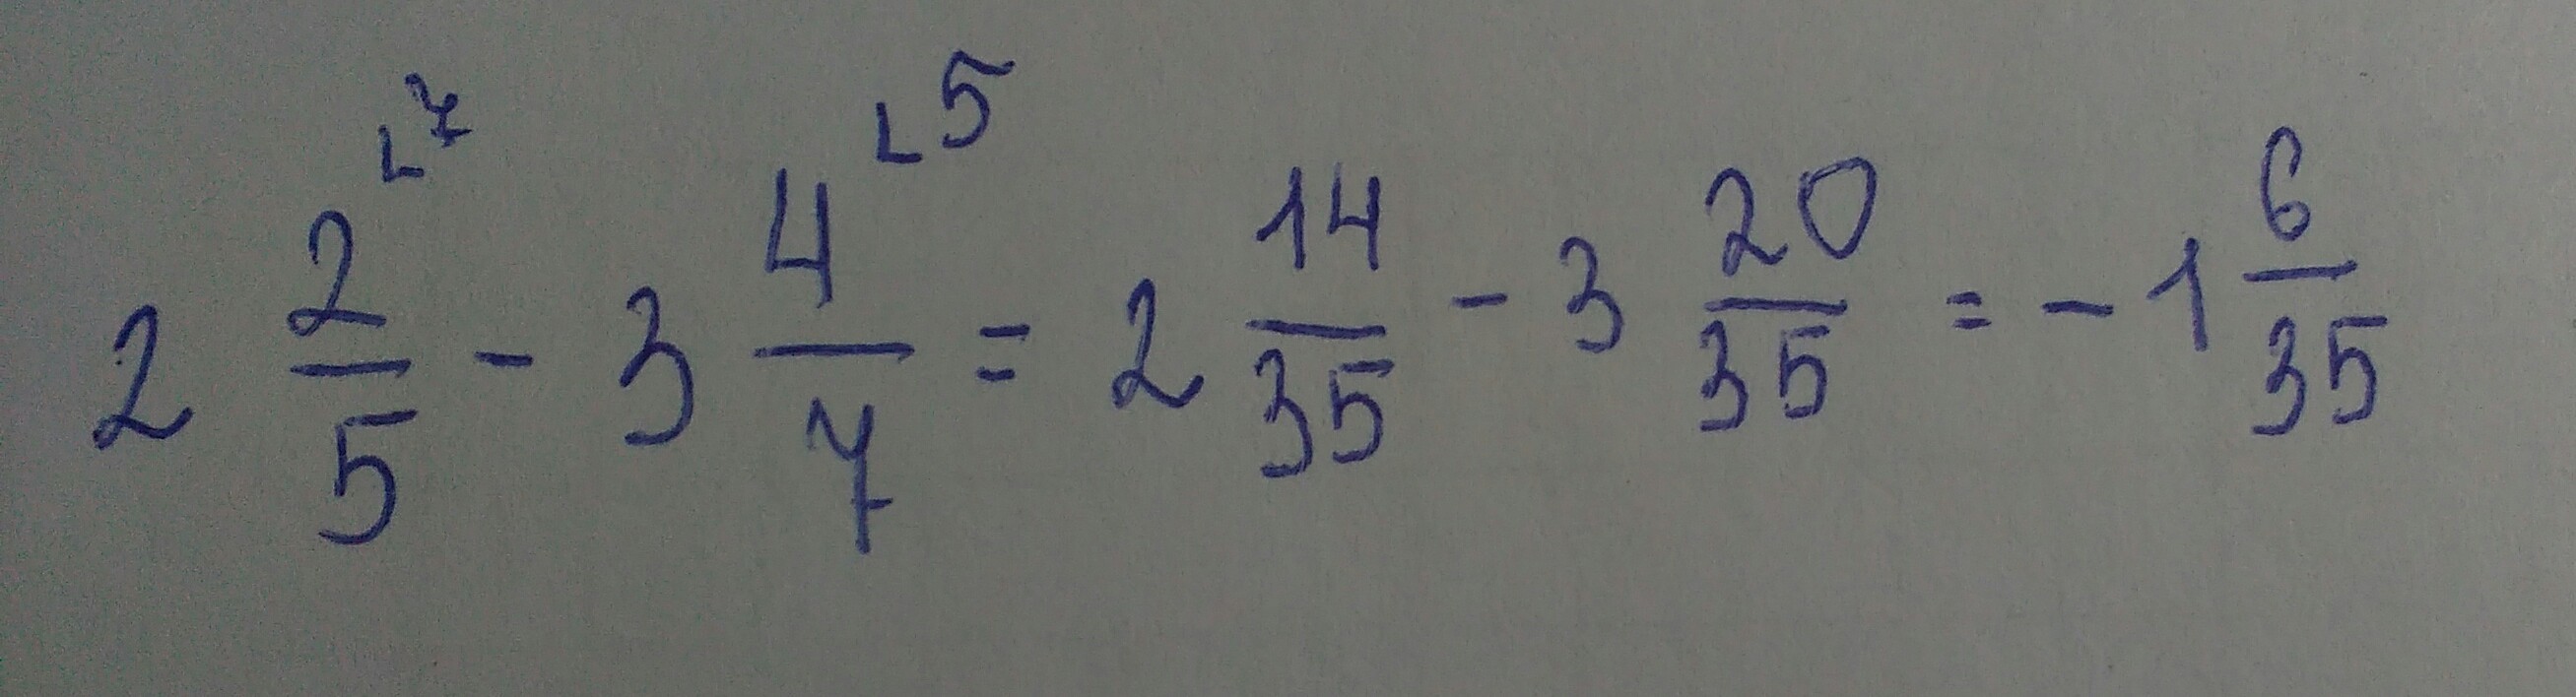 2 2/5 ⌞7 - 3 4/7 ⌞5 = 2 14/35 - 3 20/35 = - 1 6/35